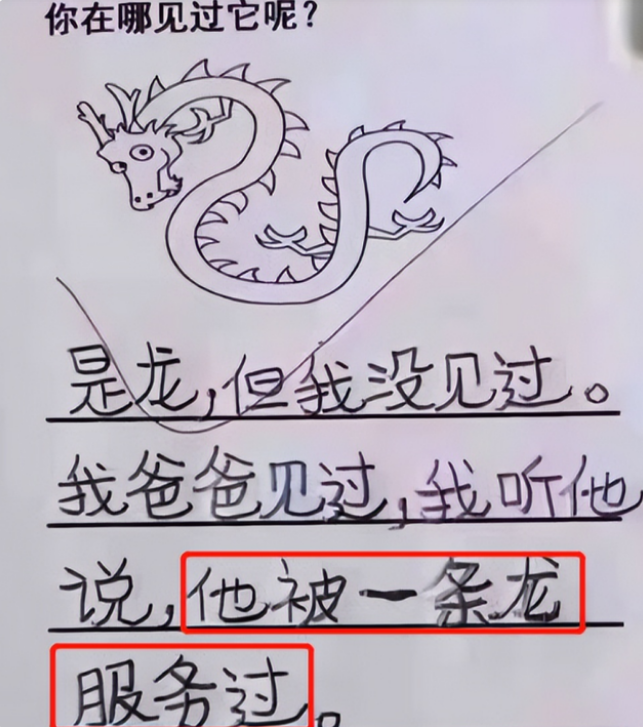 你在哪见过它呢？
是龙，但我没见过。
我爸爸见过，我听他
说，他被一条龙
服务过。